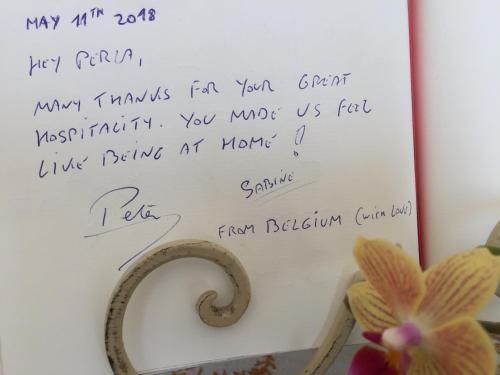 MAY 11TH 2018
HEY PERLA,
MANY THANKS FOR YOUR GREAT
HOSPITALITY. YOU MADE US FEEL
LIKE BEING AT HOME!
Peter
SABINE
FROM BELGIUM (WITH LOVE)